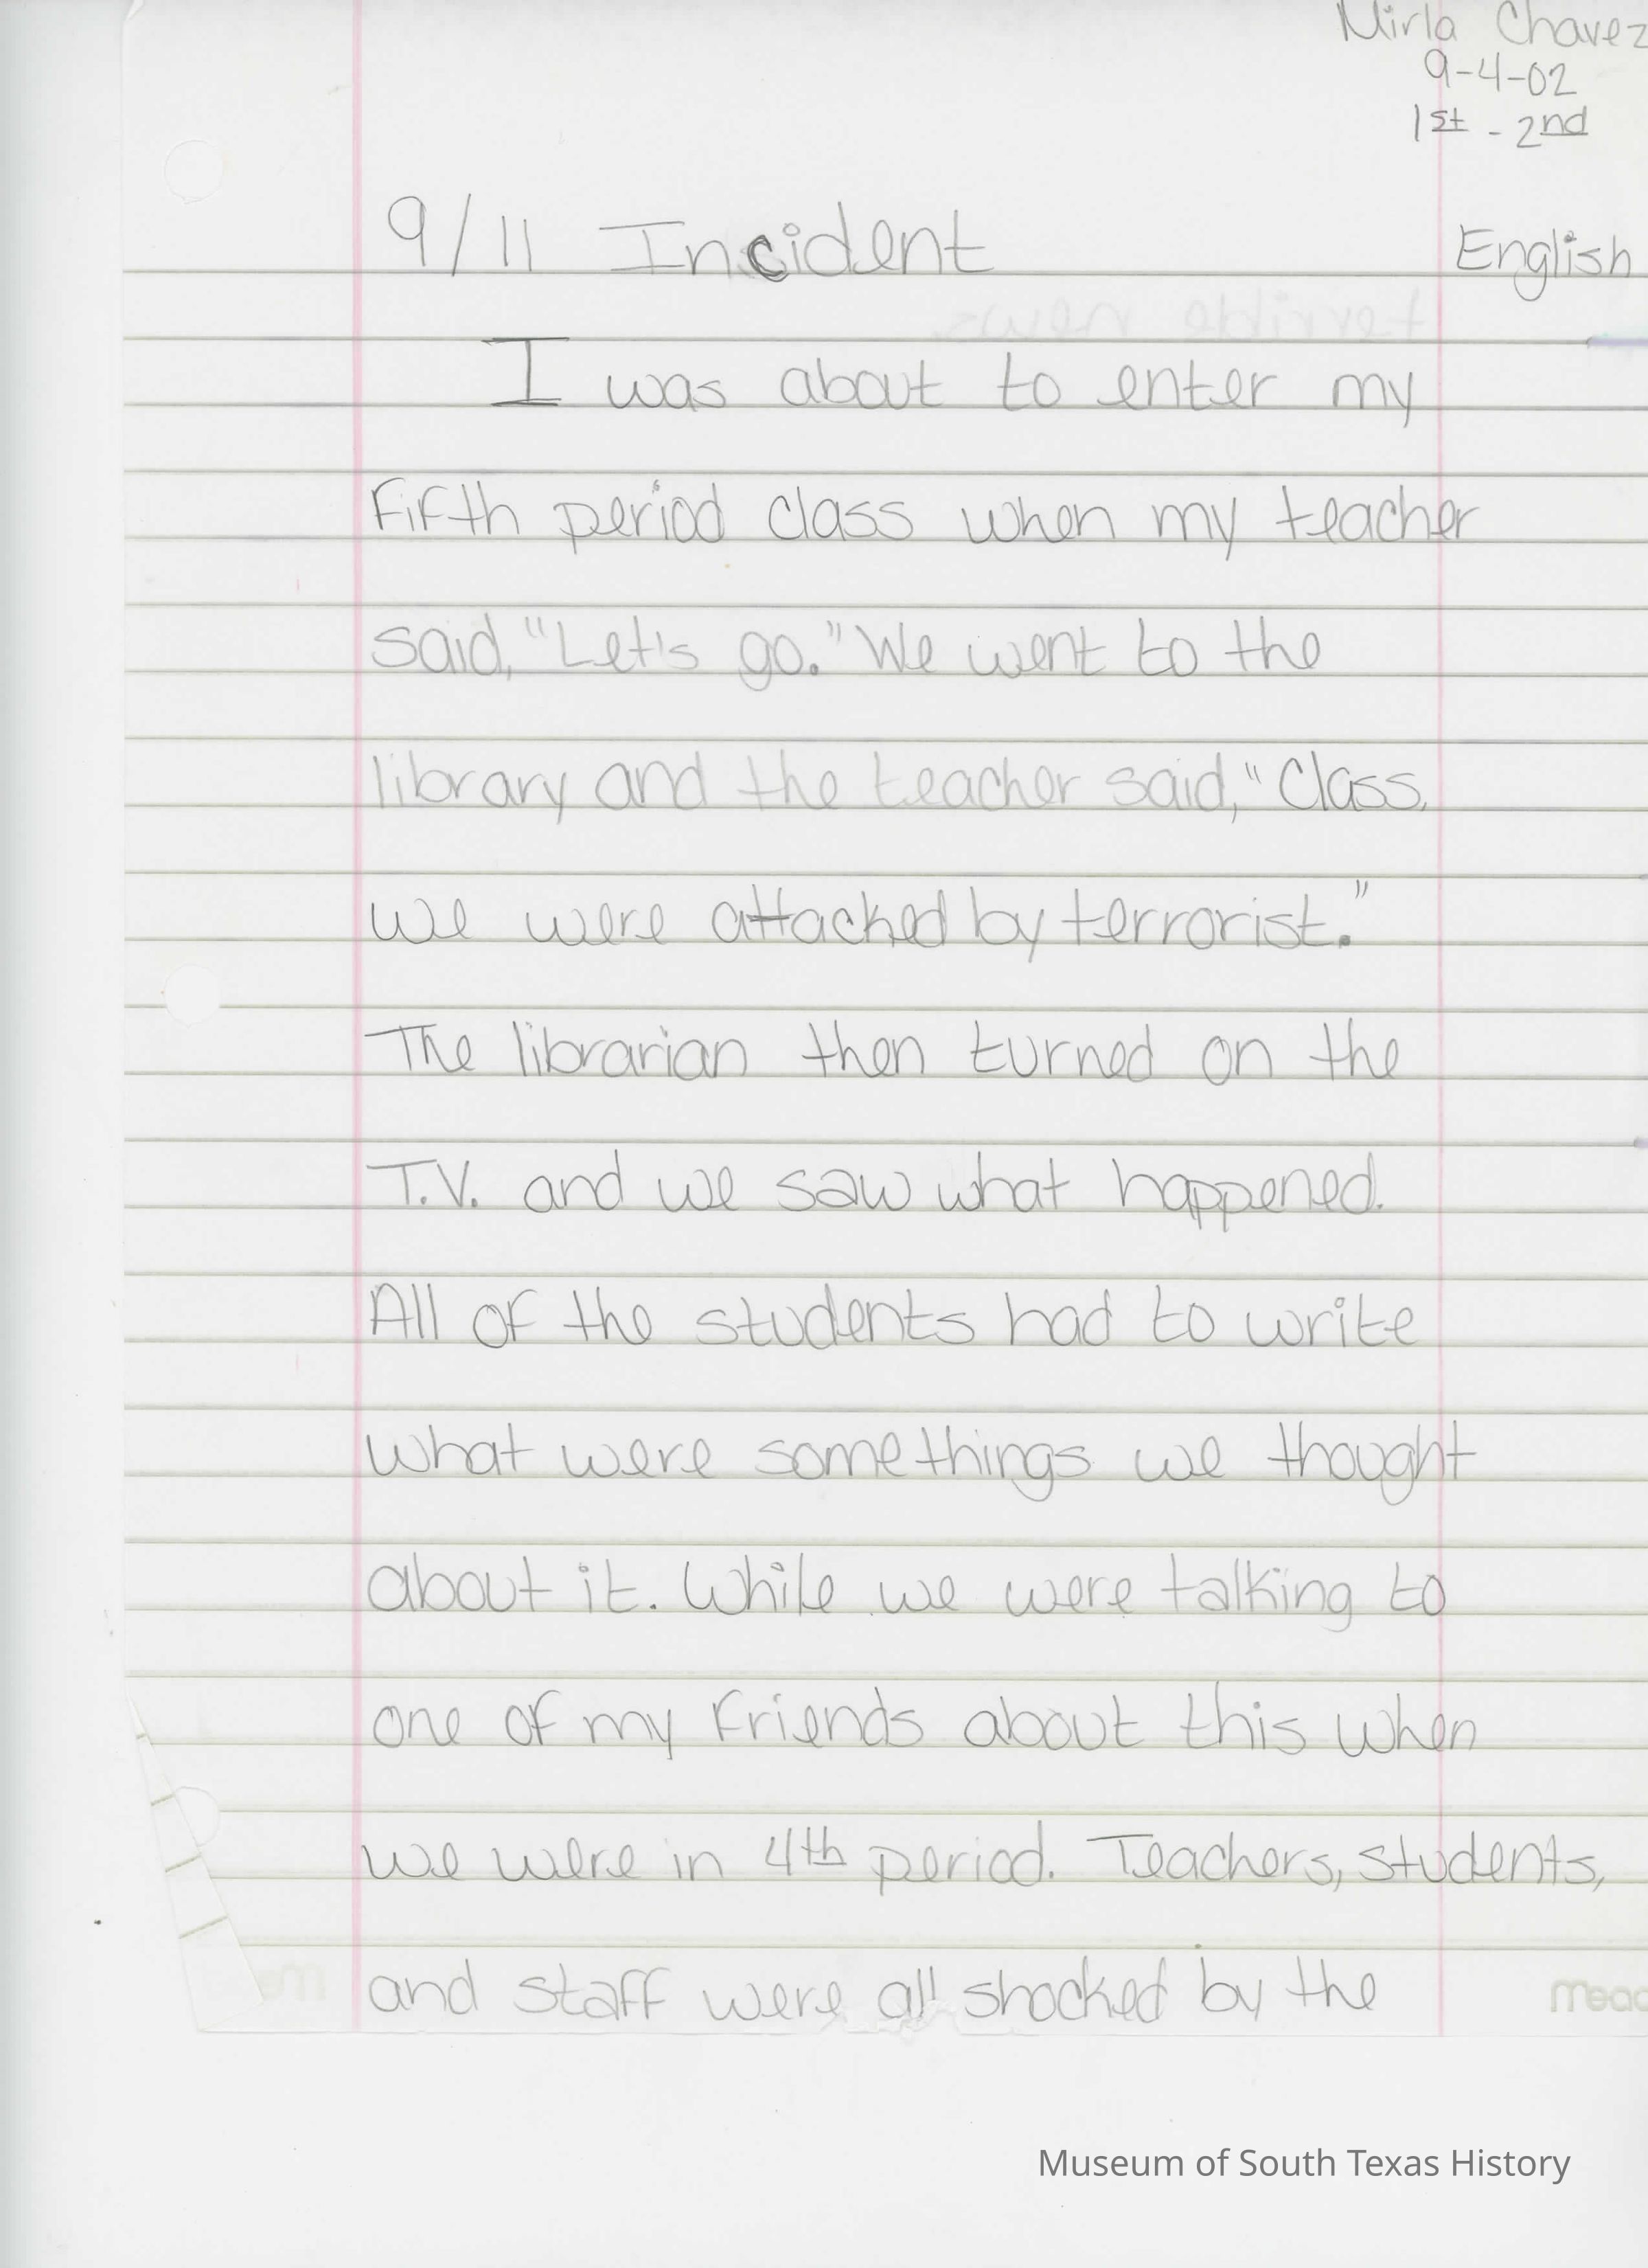 Mirla Chavez
9-4-02
1st - 2nd
9/11 Incident
English
terrible news.
I was about to enter my
fifth period class when my teacher
said, "Let's go." We went to the
library and the teacher said, "Class,
we were attacked by terrorist."
The librarian then turned on the
T.V. and we saw what happened.
All of the students had to write
what were somethings we thought
about it. While we were talking to
one of my friends about this when
we were in 4th period. Teachers, students,
and staff were all shocked by the
Mead
Museum of South Texas History